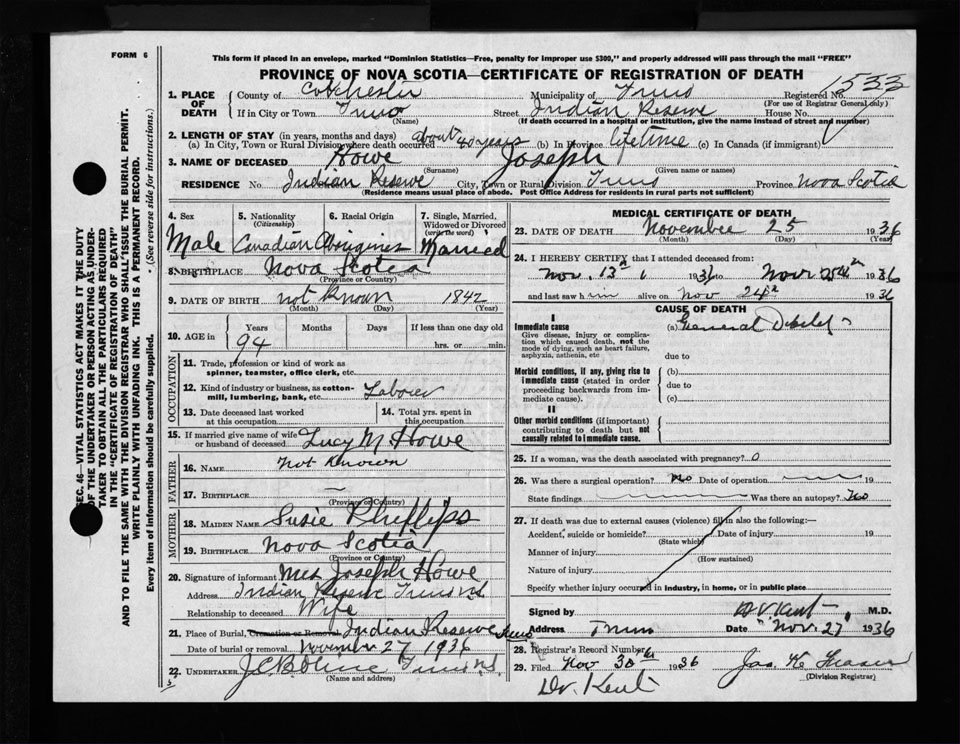 FORM 6
This form if placed in an envelope, marked "Dominion Statistics—Free, penalty for improper use $300," and properly addressed will pass through the mail "FREE"
PROVINCE OF NOVA SCOTIA—CERTIFICATE OF REGISTRATION OF DEATH
1533
1. PLACE OF DEATH County of Colchester Municipality of Truro Registered No.
(For use of Registrar General only)
If in City or Town Truro Street Indian Reserve House No.
(Name) (If death occurred in a hospital or institution, give the name instead of street and number)
2. LENGTH OF STAY (in years, months and days)
(a) In City, Town or Rural Division where death occurred about 40 years (b) In Province lifetime (c) In Canada (if immigrant)
3. NAME OF DECEASED Howe Joseph
(Surname) (Given name or names)
RESIDENCE No. Indian Reserve City, Town or Rural Division Truro Province Nova Scotia
(Residence means usual place of abode. Post Office Address for residents in rural parts not sufficient)
4. Sex Male
5. Nationality (Citizenship) Canadian
6. Racial Origin Aborigines
7. Single, Married, Widowed or Divorced (write the word) Married
8. BIRTHPLACE Nova Scotia
(Province or Country)
9. DATE OF BIRTH not known 1842
(Month) (Day) (Year)
10. AGE in Years Months Days If less than one day old
94 hrs. or min.
OCCUPATION
11. Trade, profession or kind of work as spinner, teamster, office clerk, etc.
12. Kind of industry or business, as cotton-mill, lumbering, bank, etc. Laborer
13. Date deceased last worked at this occupation
14. Total yrs. spent in this occupation
15. If married give name of wife or husband of deceased Lucy M Howe
FATHER
16. NAME not known
17. BIRTHPLACE —
(Province or Country)
MOTHER
18. MAIDEN NAME Susie Phillips
19. BIRTHPLACE Nova Scotia
(Province or Country)
20. Signature of informant Mrs Joseph Howe
Address Indian Reserve Truro N.S.
Relationship to deceased Wife
21. Place of Burial, Cremation or Removal Indian Reserve Truro
Date of burial or removal November 27 1936
22. UNDERTAKER Truro N.S.
(Name and address)
MEDICAL CERTIFICATE OF DEATH
23. DATE OF DEATH November 25 1936
(Month) (Day) (Year)
24. I HEREBY CERTIFY that I attended deceased from:
Nov. 13th 1936 to Nov. 1936
and last saw him alive on Nov 24th 1936
CAUSE OF DEATH
I
Immediate cause (a) General Debility
Give disease, injury or complication which caused death, not the mode of dying, such as heart failure, asphyxia, asthenia, etc
due to
Morbid conditions, if any, giving rise to immediate cause (stated in order proceeding backwards from immediate cause).
(b)
due to
(c)
II
Other morbid conditions (if important) contributing to death but not causally related to immediate cause.
25. If a woman, was the death associated with pregnancy? 0
26. Was there a surgical operation? No Date of operation 19
State findings Was there an autopsy? No
27. If death was due to external causes (violence) fill in also the following:—
Accident, suicide or homicide? Date of injury 19
(State which)
Manner of injury
(How sustained)
Nature of injury
Specify whether injury occurred in industry, in home, or in public place
Signed by H V Kent M.D.
Address Truro Date Nov. 27 1936
28. Registrar's Record Number
29. Filed Nov 30th 1936 Jas K Fraser
(Division Registrar)
Dr. Kent
SEC. 46—VITAL STATISTICS ACT MAKES IT THE DUTY
OF THE UNDERTAKER OR PERSON ACTING AS UNDER-
TAKER TO OBTAIN ALL THE PARTICULARS REQUIRED
IN THE "CERTIFICATE OF REGISTRATION OF DEATH"
AND TO FILE THE SAME WITH THE DIVISION REGISTRAR WHO SHALL ISSUE THE BURIAL PERMIT.
WRITE PLAINLY WITH UNFADING INK. THIS IS A PERMANENT RECORD.
Every item of information should be carefully supplied. (See reverse side for instructions.)